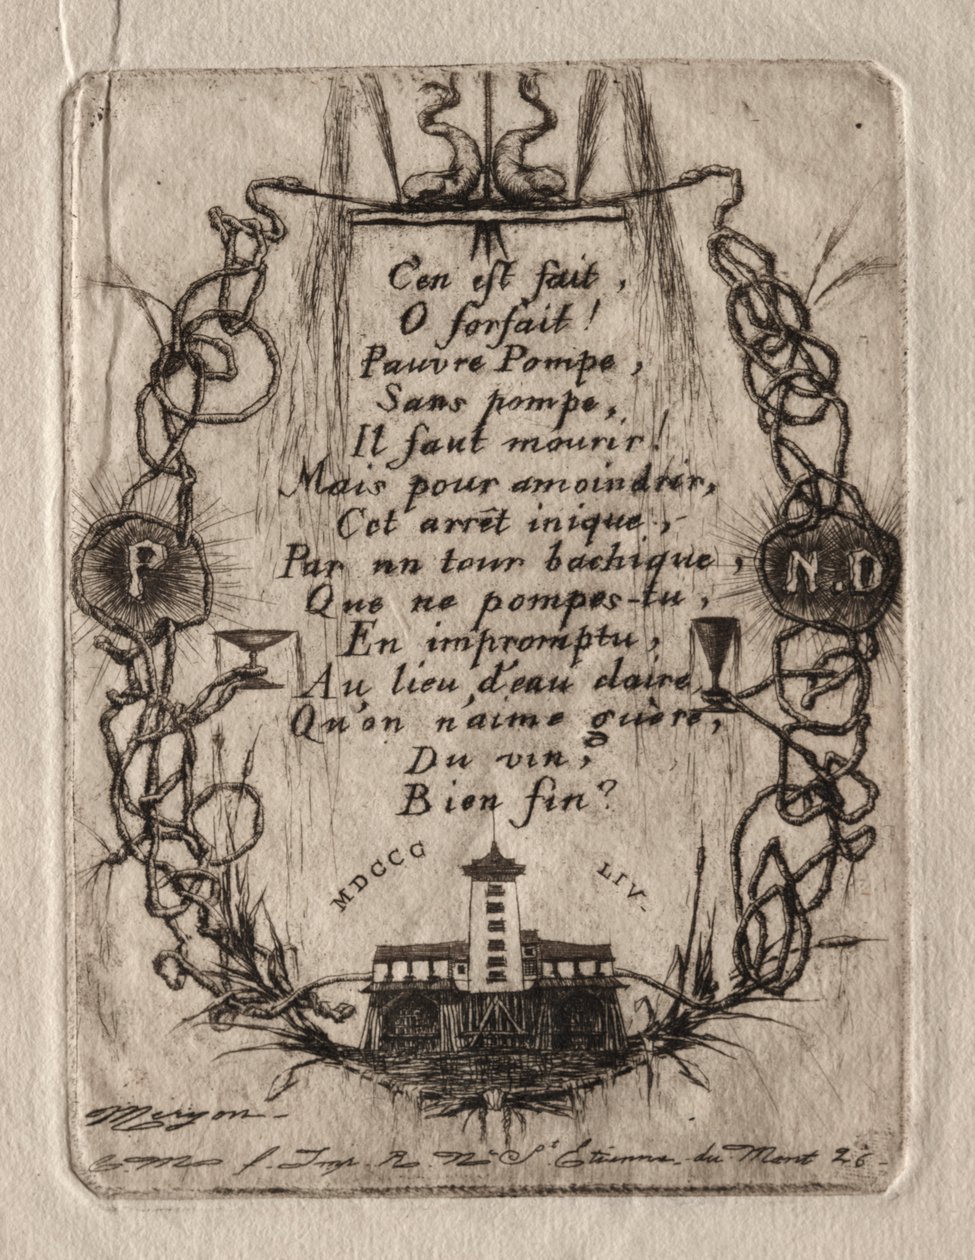 C'en est fait,
O forfait!
Pauvre Pompe,
Sans pompe,
Il faut mourir!
Mais pour amoindrir,
Cet arrêt inique,
Par un tour bachique,
Que ne pompes-tu,
En impromptu,
Au lieu d'eau claire
Qu'on n'aime guère,
Du vin,
Bien fin?
P
N.D
MDCCC LIV-
Meryon-
C. M. f. Imp. R. Ne St Étienne-du-Mont 26-